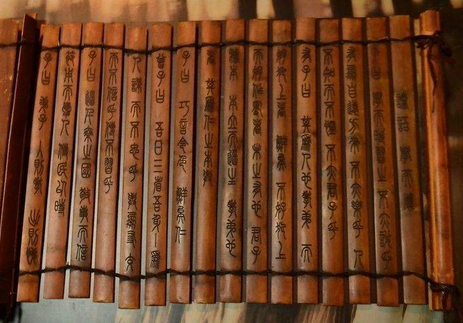 論語 學而
子曰 學而時習之 不亦說乎
有朋自遠方來 不亦樂乎 人
不知而不慍 不亦君子乎
有子曰 其為人也孝弟 而
好犯上者 鮮矣 不好犯上
而好作亂者 未之有也 君子
務本 本立而道生 孝弟也
者 其為仁之本與
子曰 巧言令色 鮮矣仁
曾子曰 吾日三省吾身 為
人謀而不忠乎 與朋友交
而不信乎 傳不習乎
子曰 道千乘之國 敬事而信
節用而愛人 使民以時
子曰 弟子 入則孝 出則弟